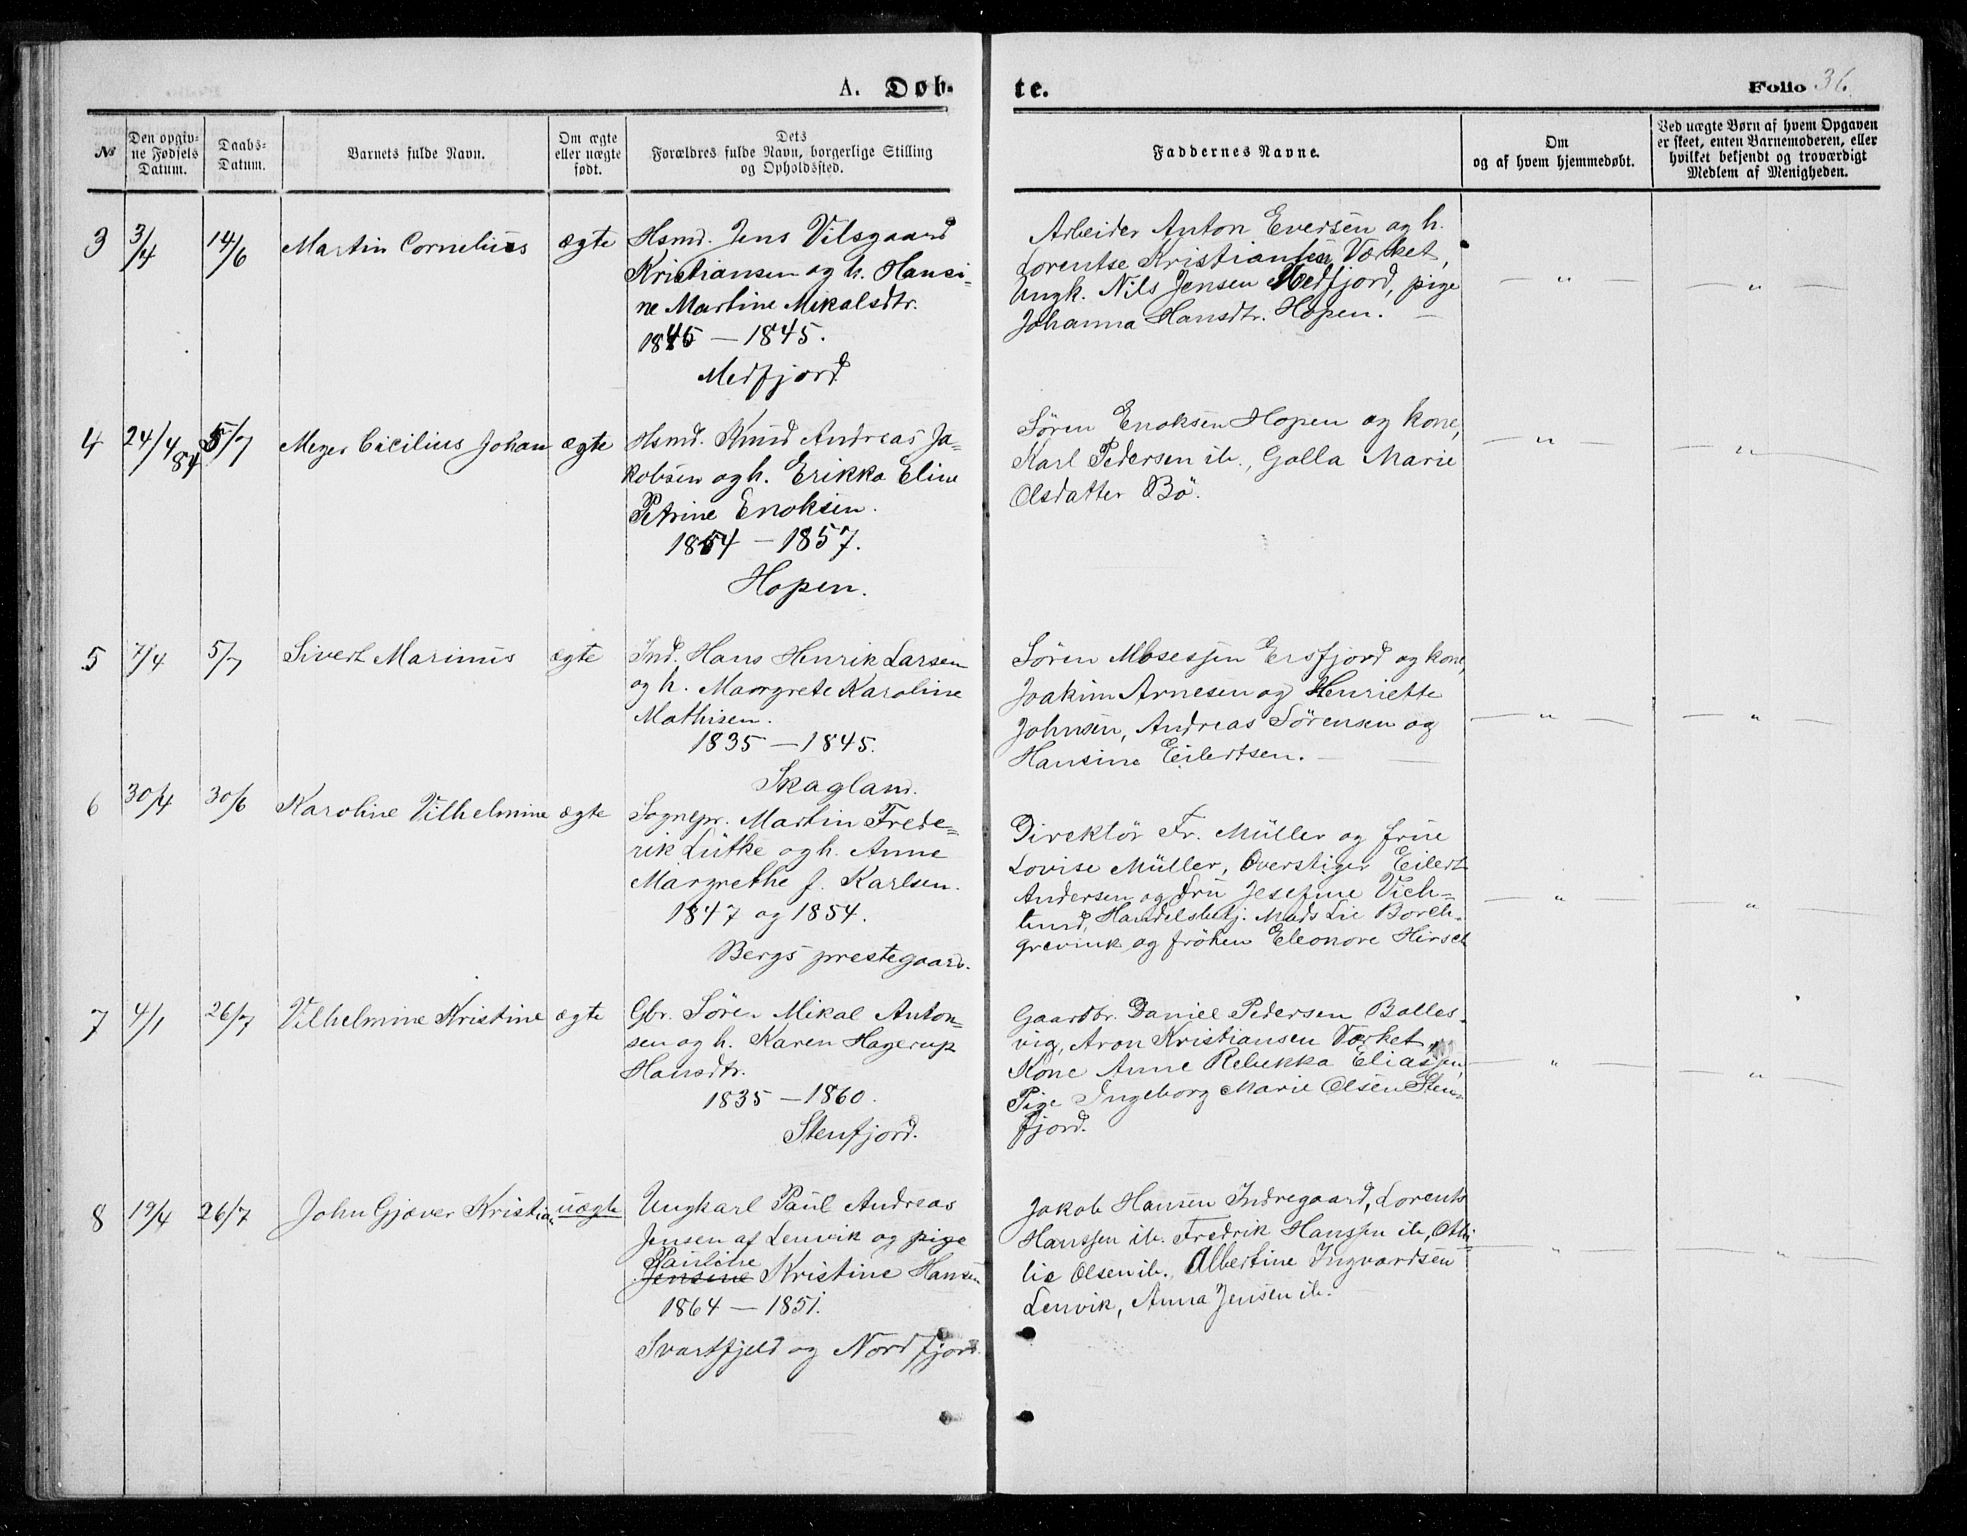 A. Døb- te.
Folio 36.
№
Den opgiv-
ne Fødsels
Datum.
Daabs-
Datum.
Barnets fulde Navn.
Om ægte
eller uægte
født.
Dets
Forældres fulde Navn, borgerlige Stilling
og Opholdssted.
Faddernes Navne.
Om
og af hvem hjemmedøbt.
Ved uægte Børn af hvem Opgaven
er skeet, enten Barnemoderen, eller
hvilket bekjendt og troværdigt
Medlem af Menigheden.
3 3/4 14/6 Martin Cornelius ægte
Hsmd. Jens Vilsgaard
Kristiansen og h. Hansi-
ne Martine Mikalsdtr.
1846 — 1845.
Medfjord
Arbeider Anton Eversen og h.
Lorentse Kristiansen Værket,
Ungk. Nils Jensen Medfjord, pige
Johanna Hansdtr. Hopen. —
— " — — " —
4 24/4 84 5/7 Meyer Cicilius Johan ægte
Hsmd. Knud Andreas Ja-
kobsen og h. Erikka Eline
Petrine Enoksen.
1854 — 1857.
Hopen.
Søren Enoksen Hopen og kone,
Karl Pedersen ib., Golla Marie
Olsdatter Bö.
— " — — " —
5 7/4 5/7 Sivert Marinus ægte
Ind. Hans Henrik Larsen
og h. Margrete Karoline
Mathisen.
1835 — 1845.
Skagland.
Søren Mosessen Ersfjord og kone,
Joakim Arnesen og Henriette
Johnsen, Andreas Sörensen og
Hansine Eilertsen. —
— " — — " —
6 30/4 30/6 Karoline Vilhelmine ægte
Sognepr. Martin Frede-
rik Lütke og h. Anne
Margrethe f. Karlsen.
1847 og 1854.
Bergs prestegaard.
Direktør Fr. Müller og frue
Lovise Müller, Overstiger Eilert
Andersen og Fru Josefine Vich-
lund, Handelsbetj. Mads Lie Borch-
grevink og frøken Eleonore Hirsch
— " — — " —
7 4/1 26/7 Vilhelmine Kristine ægte
Gbr. Søren Mikal Anton-
sen og h. Karen Hagerup
Hansdtr.
1835 — 1860.
Stenfjord.
Gaardbr. Daniel Pedersen Balles-
vig, Aron Kristiansen Værket,
Kone Anne Rebekka Eliassen,
Pige Ingeborg Marie Olsen Sten-
fjord.
— " — — " —
8 19/4 26/7 John Gjæver Kristian uægte
Ungkarl Paul Andreas
Jensen af Lenvik og pige
Pauline
Jensine Kristine Hansen
1864 — 1851.
Svartfjeld og Nordfjord.
Jakob Hansen Indregaard, Lorents
Hanssen ib. Fredrik Hanssen ib, Otti-
lie Olsen ib. Albertine Ingvardsen
Lenvik, Anna Jensen ib.
— " — — " —